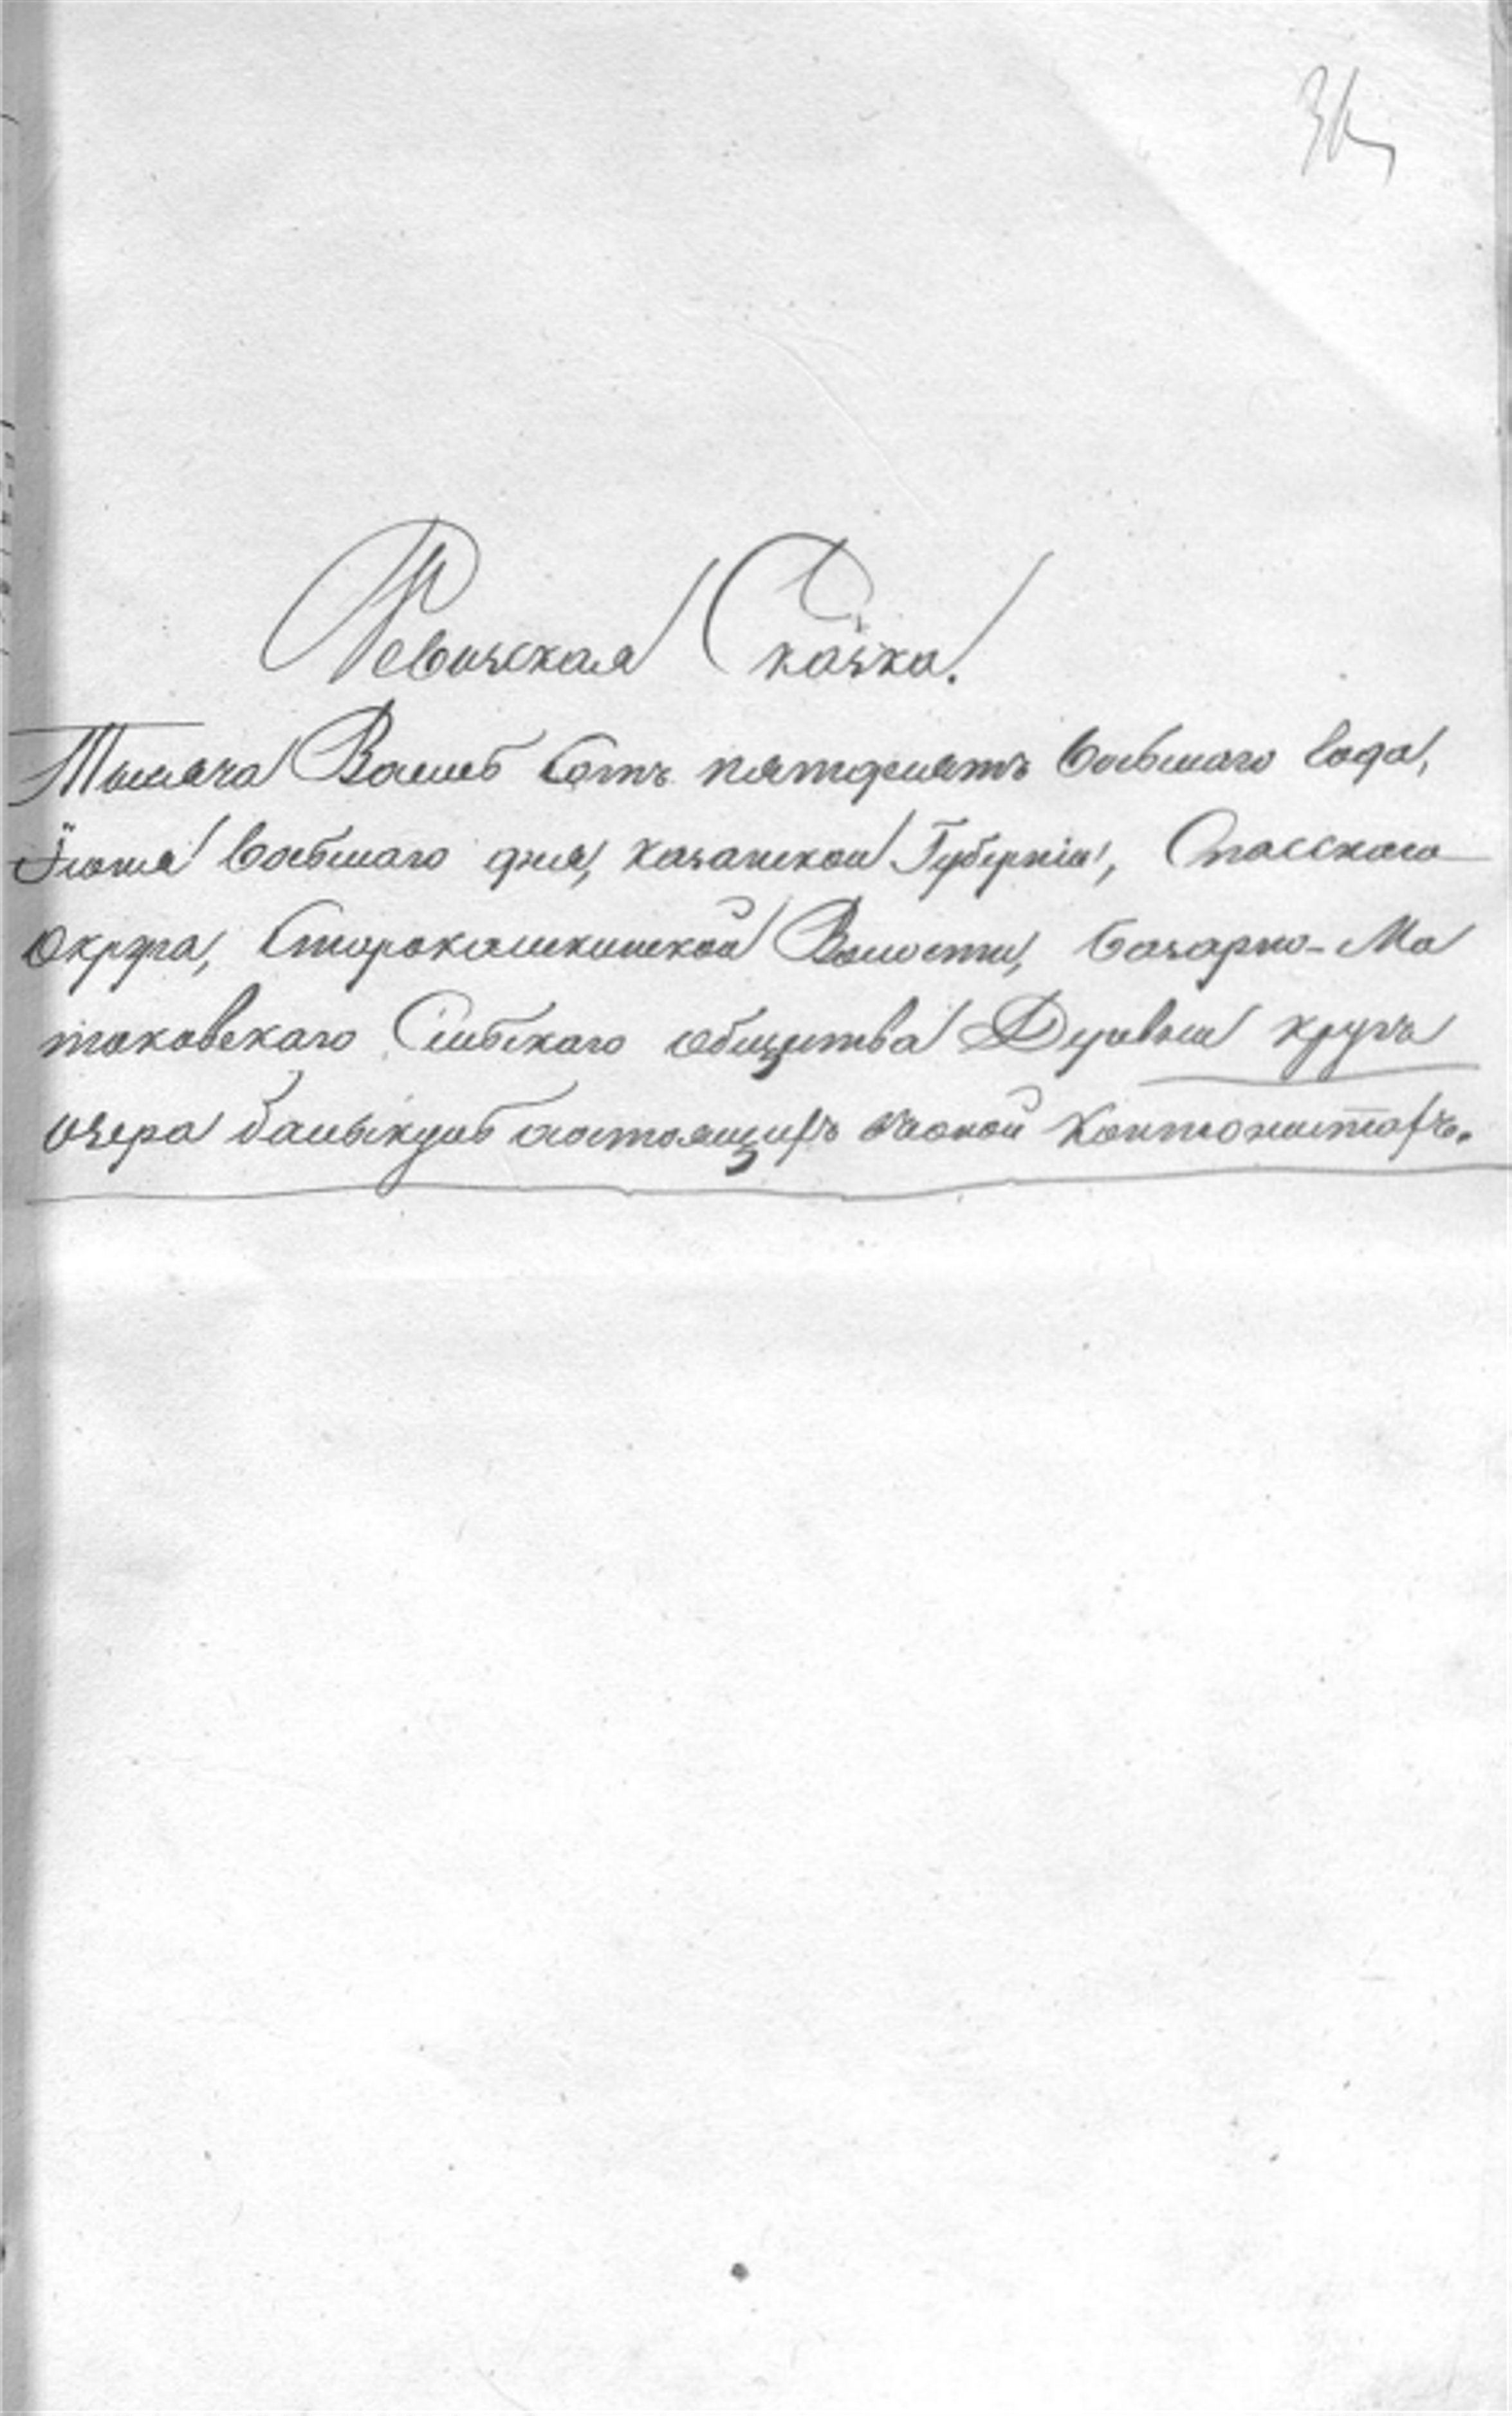 36
Ревизская Сказка.
Тысяча Восемь Сотъ пятдесятъ Восьмаго Года,
Iюня Восьмаго дня, Казанской Губернiи, Спасскаго
Округа, Старокамкинской Волости, Базарно-Ма
таковскаго Сельскаго общества Деревни кругъ
озера состоящихъ Кантонистахъ.